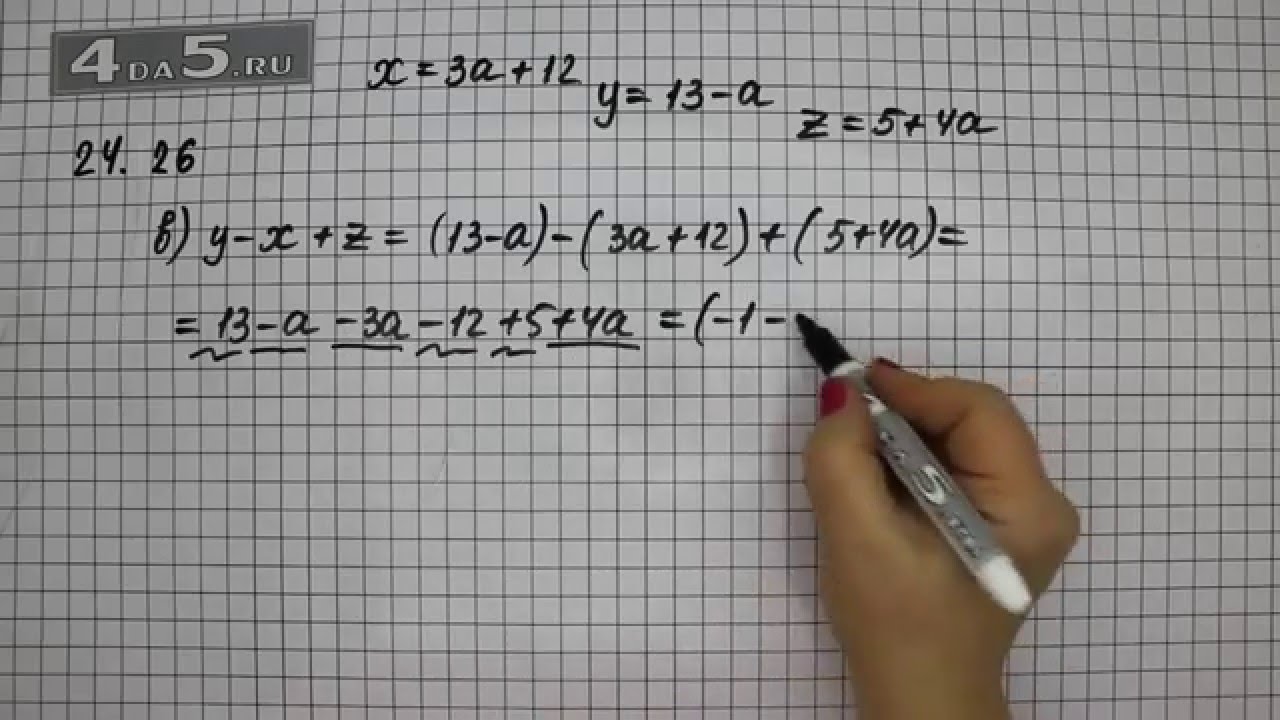 4DA5.RU
x = 3a + 12
y = 13 - a
z = 5 + 4a
24. 26
в) y - x + z = (13 - a) - (3a + 12) + (5 + 4a) =
= 13 - a - 3a - 12 + 5 + 4a = (-1 -